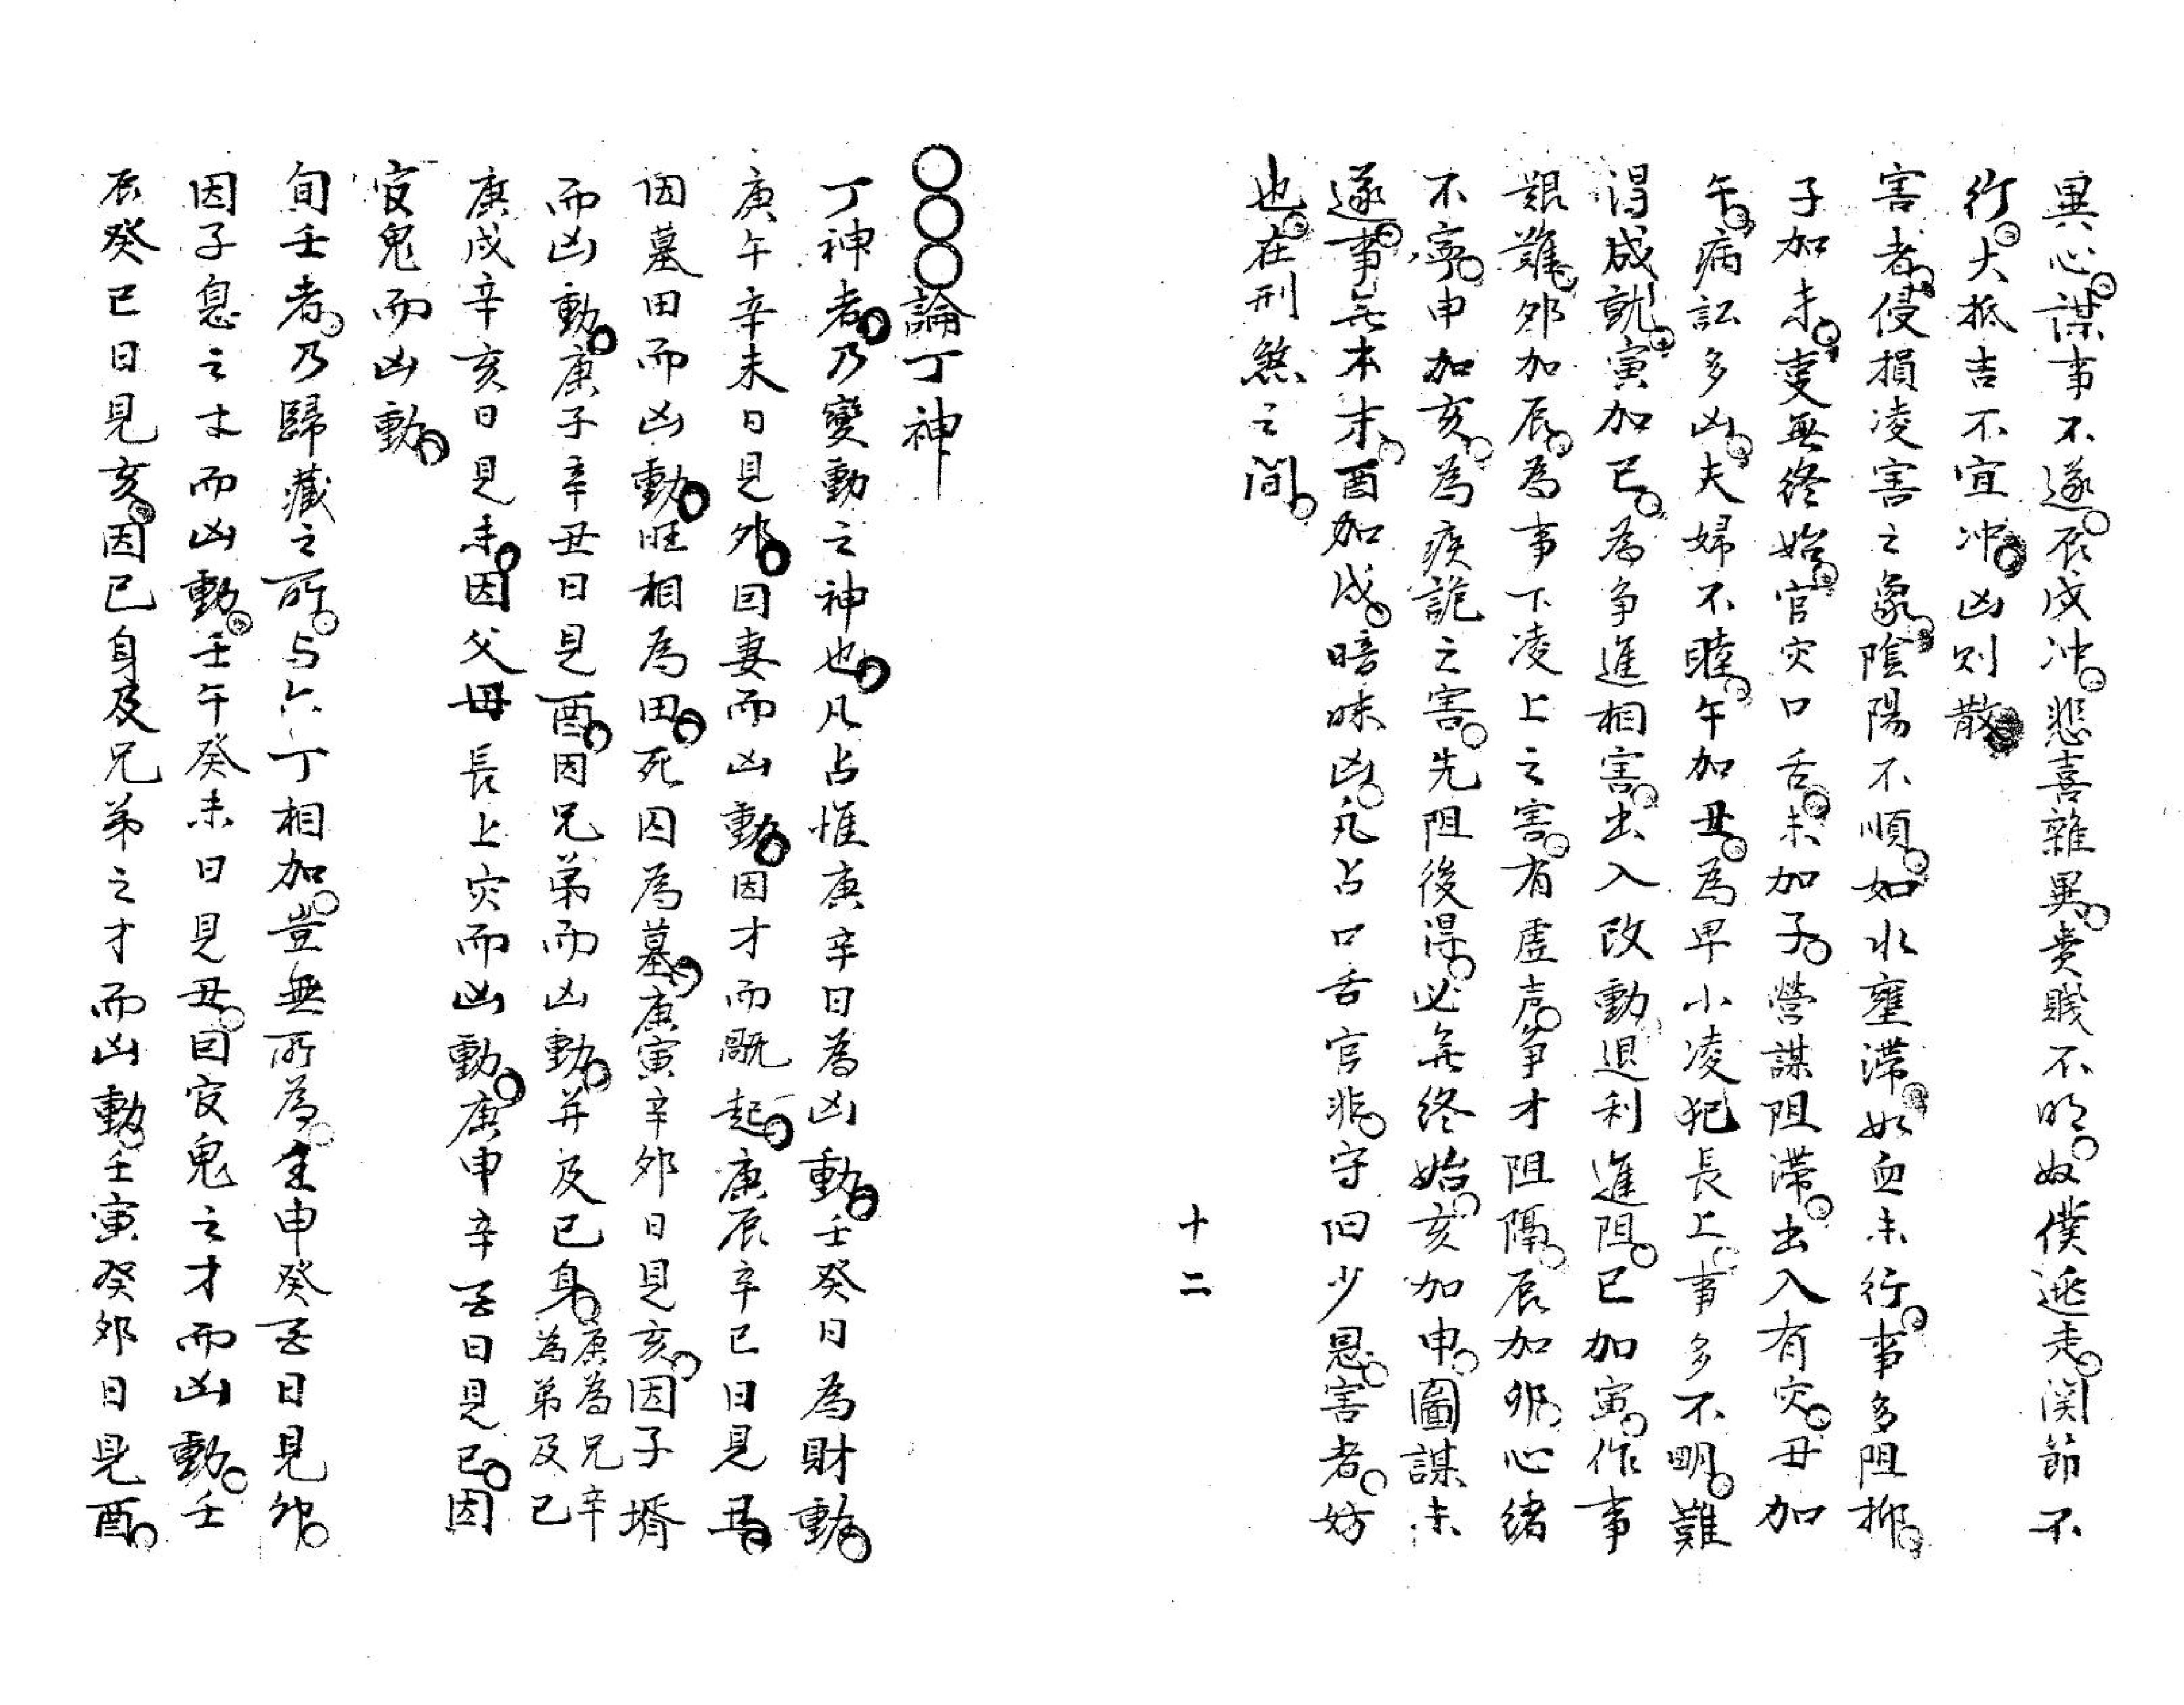 異心。謀事不遂。辰戌冲。悲喜雜異。貴賤不明。奴僕逃走。関節不
行。大抵吉不宜冲。凶则散。
害者。侵損凌害之象。陰陽不順。如水壅滞。如血未行。事多阻抑。
子加未。事無终始。官灾口舌。未加子。营謀阻滞。出入有灾。丑加
午。病訟多凶。夫婦不睦。午加丑。為卑小凌犯長上。事多不明。難
得成就。寅加巳。為争進相害。出入改動退利進阻。巳加寅。作事
艱難。卯加辰。為事下凌上之害。有虚声。争才阻隔。辰加卯。心绪
不寧。申加亥。為疾詭之害。先阻後得。必無终始。亥加申。圖謀未
遂。事無本末。酉加戌。暗昧凶。凡占口舌官非。守旧少恩。害者。妨
也。在刑煞之间。
十二
○○○論丁神
丁神者。乃變動之神也。凡占惟庚辛日為凶動。壬癸日為財動。
庚午辛未日見卯。因妻而凶動。因才而既起。庚辰辛巳日見丑。
因墓田而凶動。旺相為田。死囚為墓。庚寅辛卯日見亥。因子壻
而凶動。庚子辛丑日見酉。因兄弟而凶動。并及已身。庚為兄辛為弟及已
庚戌辛亥日見未。因父母長上灾而凶動。庚申辛酉日見巳。因
官鬼而凶動。
旬壬者。乃歸藏之所。与六丁相加。豈無所為。壬申癸酉日見卯。
因子息之才而凶動。壬午癸未日見丑。因官鬼之才而凶動。壬
辰癸巳日見亥。因已身及兄弟之才而凶動。壬寅癸卯日見酉。